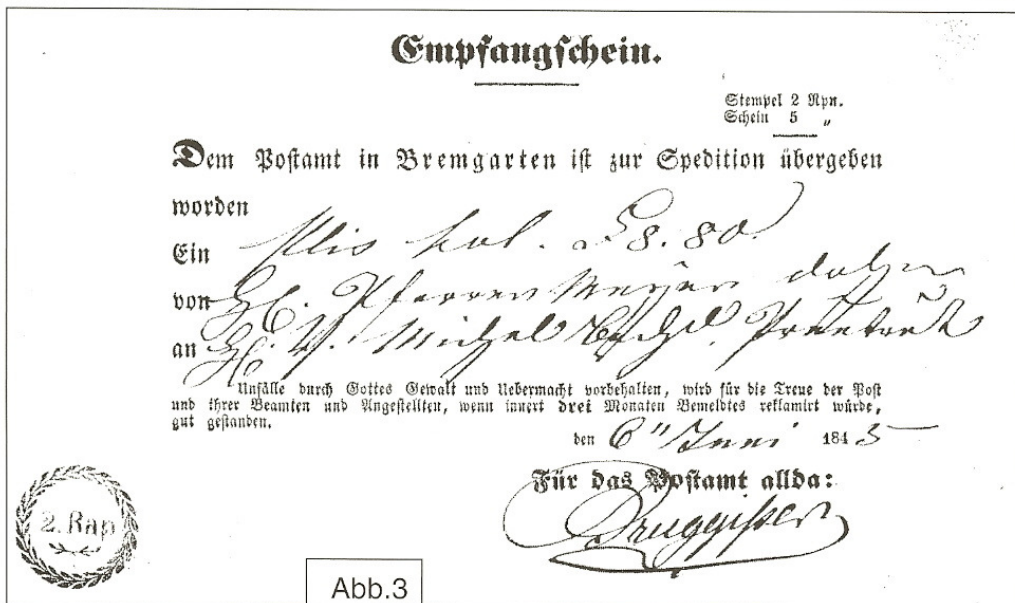 Empfangschein.
Stempel 2 Rpn.
Schein 5 „
Dem Postamt in Bremgarten ist zur Spedition übergeben
worden
Ein
von Pfarrer Meyer
an Michel
Unfälle durch Gottes Gewalt und Uebermacht vorbehalten, wird für die Treue der Post
und ihrer Beamten und Angestellten, wenn innert drei Monaten Bemeldtes reklamirt würde,
gut gestanden.
den 6" Juni 1845
Für das Postamt allda:
Bruggisser
2. Rap
Abb.3